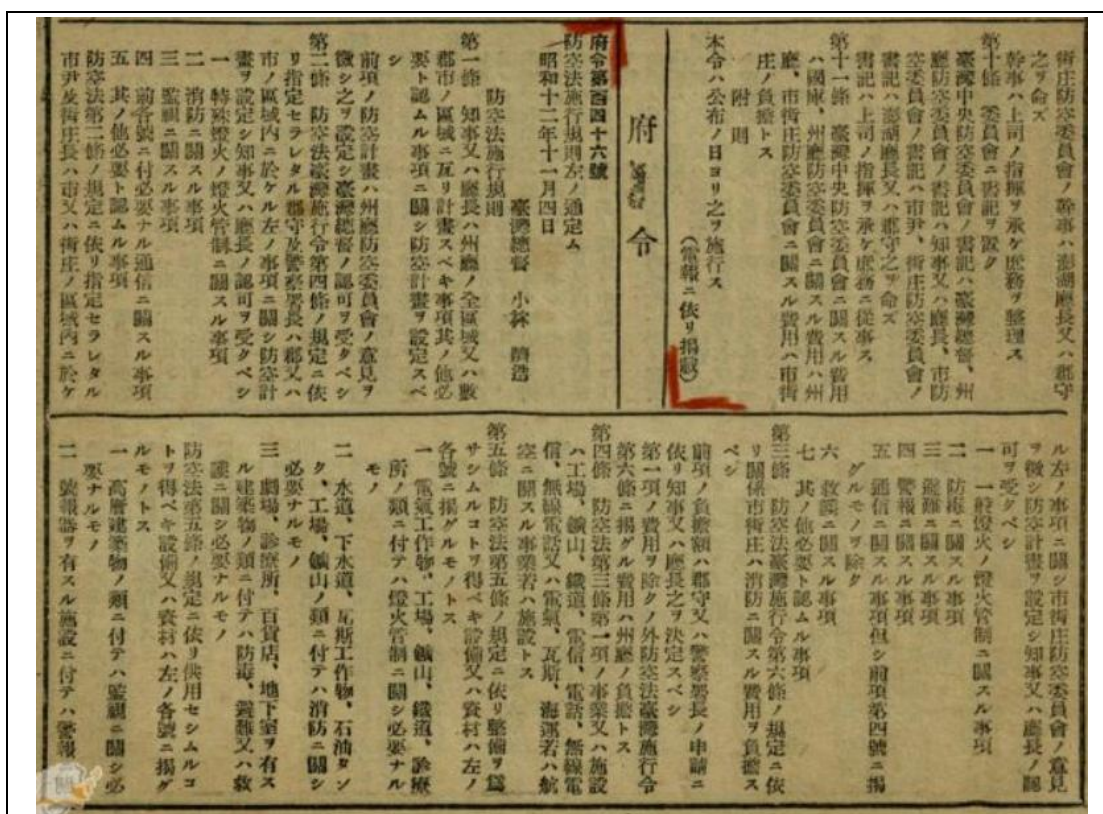 街庄防空委員會ノ幹事ハ澎湖廳長又ハ郡守
之ヲ命ズ
幹事ハ上司ノ指揮ヲ承ケ庶務ヲ整理ス
第十條　委員會ニ書記ヲ置ク
臺灣中央防空委員會ノ書記ハ臺灣總督、州
廳防空委員會ノ書記ハ知事又ハ廳長、市防
空委員會ノ書記ハ市尹、街庄防空委員會ノ
書記ハ澎湖廳長又ハ郡守之ヲ命ズ
書記ハ上司ノ指揮ヲ承ケ庶務ニ從事ス
第十一條　臺灣中央防空委員會ニ關スル費用
ハ國庫、州廳防空委員會ニ關スル費用ハ州
廳、市街庄防空委員會ニ關スル費用ハ市街
庄ノ負擔トス
附則
本令ハ公布ノ日ヨリ之ヲ施行ス
（電報ニ依リ揭載）
府令
府令第百四十六號
防空法施行規則左ノ通定ム
昭和十二年十一月四日
臺灣總督　小林　躋造
防空法施行規則
第一條　知事又ハ廳長ハ州廳ノ全區域又ハ數
郡市ノ區域ニ亙リ計畫スベキ事項其ノ他必
要ト認ムル事項ニ關シ防空計畫ヲ設定スベ
シ
前項ノ防空計畫ハ州廳防空委員會ノ意見ヲ
徵シ之ヲ設定シ臺灣總督ノ認可ヲ受クベシ
第二條　防空法臺灣施行令第四條ノ規定ニ依
リ指定セラレタル郡守及警察署長ハ郡又ハ
市ノ區域內ニ於ケル左ノ事項ニ關シ防空計
畫ヲ設定シ知事又ハ廳長ノ認可ヲ受クベシ
一　特殊燈火ノ燈火管制ニ關スル事項
二　消防ニ關スル事項
三　監視ニ關スル事項
四　前各號ニ付必要ナル通信ニ關スル事項
五　其ノ他必要ト認ムル事項
防空法第二條ノ規定ニ依リ指定セラレタル
市尹及街庄長ハ市又ハ街庄ノ區域內ニ於ケ
ル左ノ事項ニ關シ市街庄防空委員會ノ意見
ヲ徵シ防空計畫ヲ設定シ知事又ハ廳長ノ認
可ヲ受クベシ
一　一般燈火ノ燈火管制ニ關スル事項
二　防毒ニ關スル事項
三　避難ニ關スル事項
四　警報ニ關スル事項
五　通信ニ關スル事項但シ前項第四號ニ揭
グルモノヲ除ク
六　救護ニ關スル事項
七　其ノ他必要ト認ムル事項
第三條　防空法臺灣施行令第六條ノ規定ニ依
リ關係市街庄ハ消防ニ關スル費用ヲ負擔ス
ベシ
前項ノ負擔額ハ郡守又ハ警察署長ノ申請ニ
依リ知事又ハ廳長之ヲ決定スベシ
第一項ノ費用ヲ除クノ外防空法臺灣施行令
第六條ニ揭グル費用ハ州廳ノ負擔トス
第四條　防空法第三條第一項ノ事業又ハ施設
ハ工場、鑛山、鐵道、電信、電話、無線電
信、無線電話又ハ電氣、瓦斯、海運若ハ航
空ニ關スル事業若ハ施設トス
第五條　防空法第五條ノ規定ニ依リ整備ヲ爲
サシムルコトヲ得ベキ設備又ハ資材ハ左ノ
各號ニ揭グルモノトス
一　電氣工作物、工場、鑛山、鐵道、診療
所ノ類ニ付テハ燈火管制ニ關シ必要ナル
モノ
二　水道、下水道、瓦斯工作物、石油タン
ク、工場、鑛山ノ類ニ付テハ消防ニ關シ
必要ナルモノ
三　劇場、診療所、百貨店、地下室ヲ有ス
ル建築物ノ類ニ付テハ防毒、避難又ハ救
護ニ關シ必要ナルモノ
防空法第五條ノ規定ニ依リ供用セシムルコ
トヲ得ベキ設備又ハ資材ハ左ノ各號ニ揭グ
ルモノトス
一　高層建築物ノ類ニ付テハ監視ニ關シ必
要ナルモノ
二　號報器ヲ有スル施設ニ付テハ警報